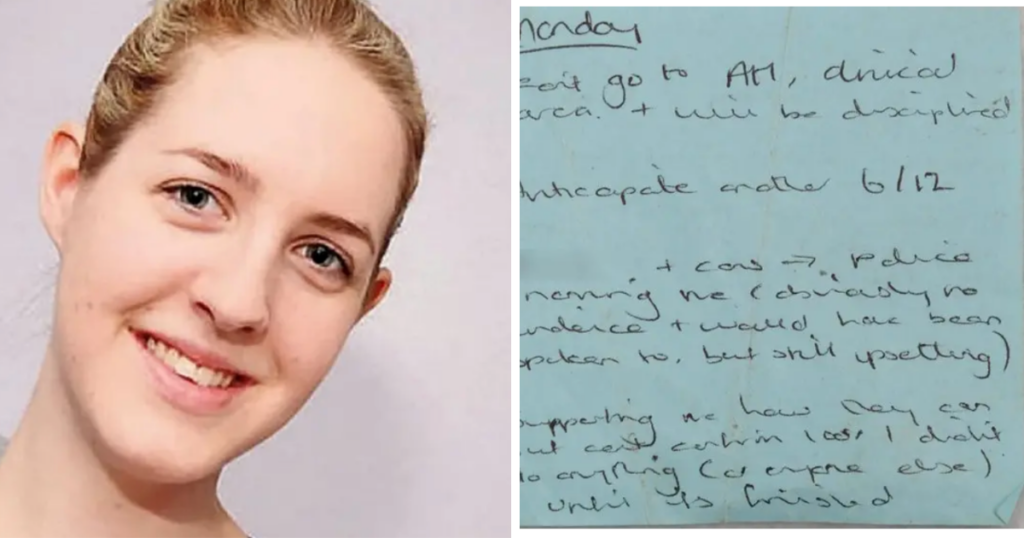 Monday
can't go to AH, clinical
area. + will be disciplined
Anticapate another 6/12
+ cons → police
naming me (obviously no
evidence + would have been
spoken to, but still upsetting)
supporting me how they can
but can't confirm 100% I didn't
do anything (or anyone else)
until its finished